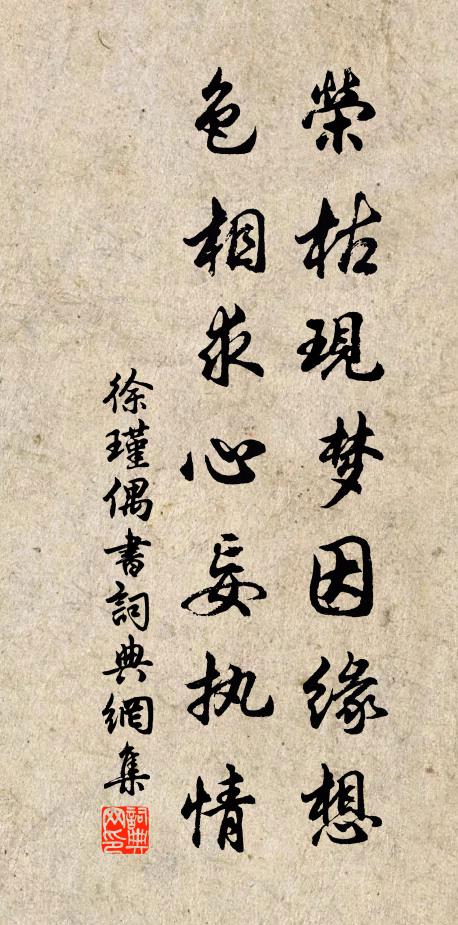 榮枯現梦因缘想
色相求心妄执情
徐瑾偶書詞典網集
詞典网印